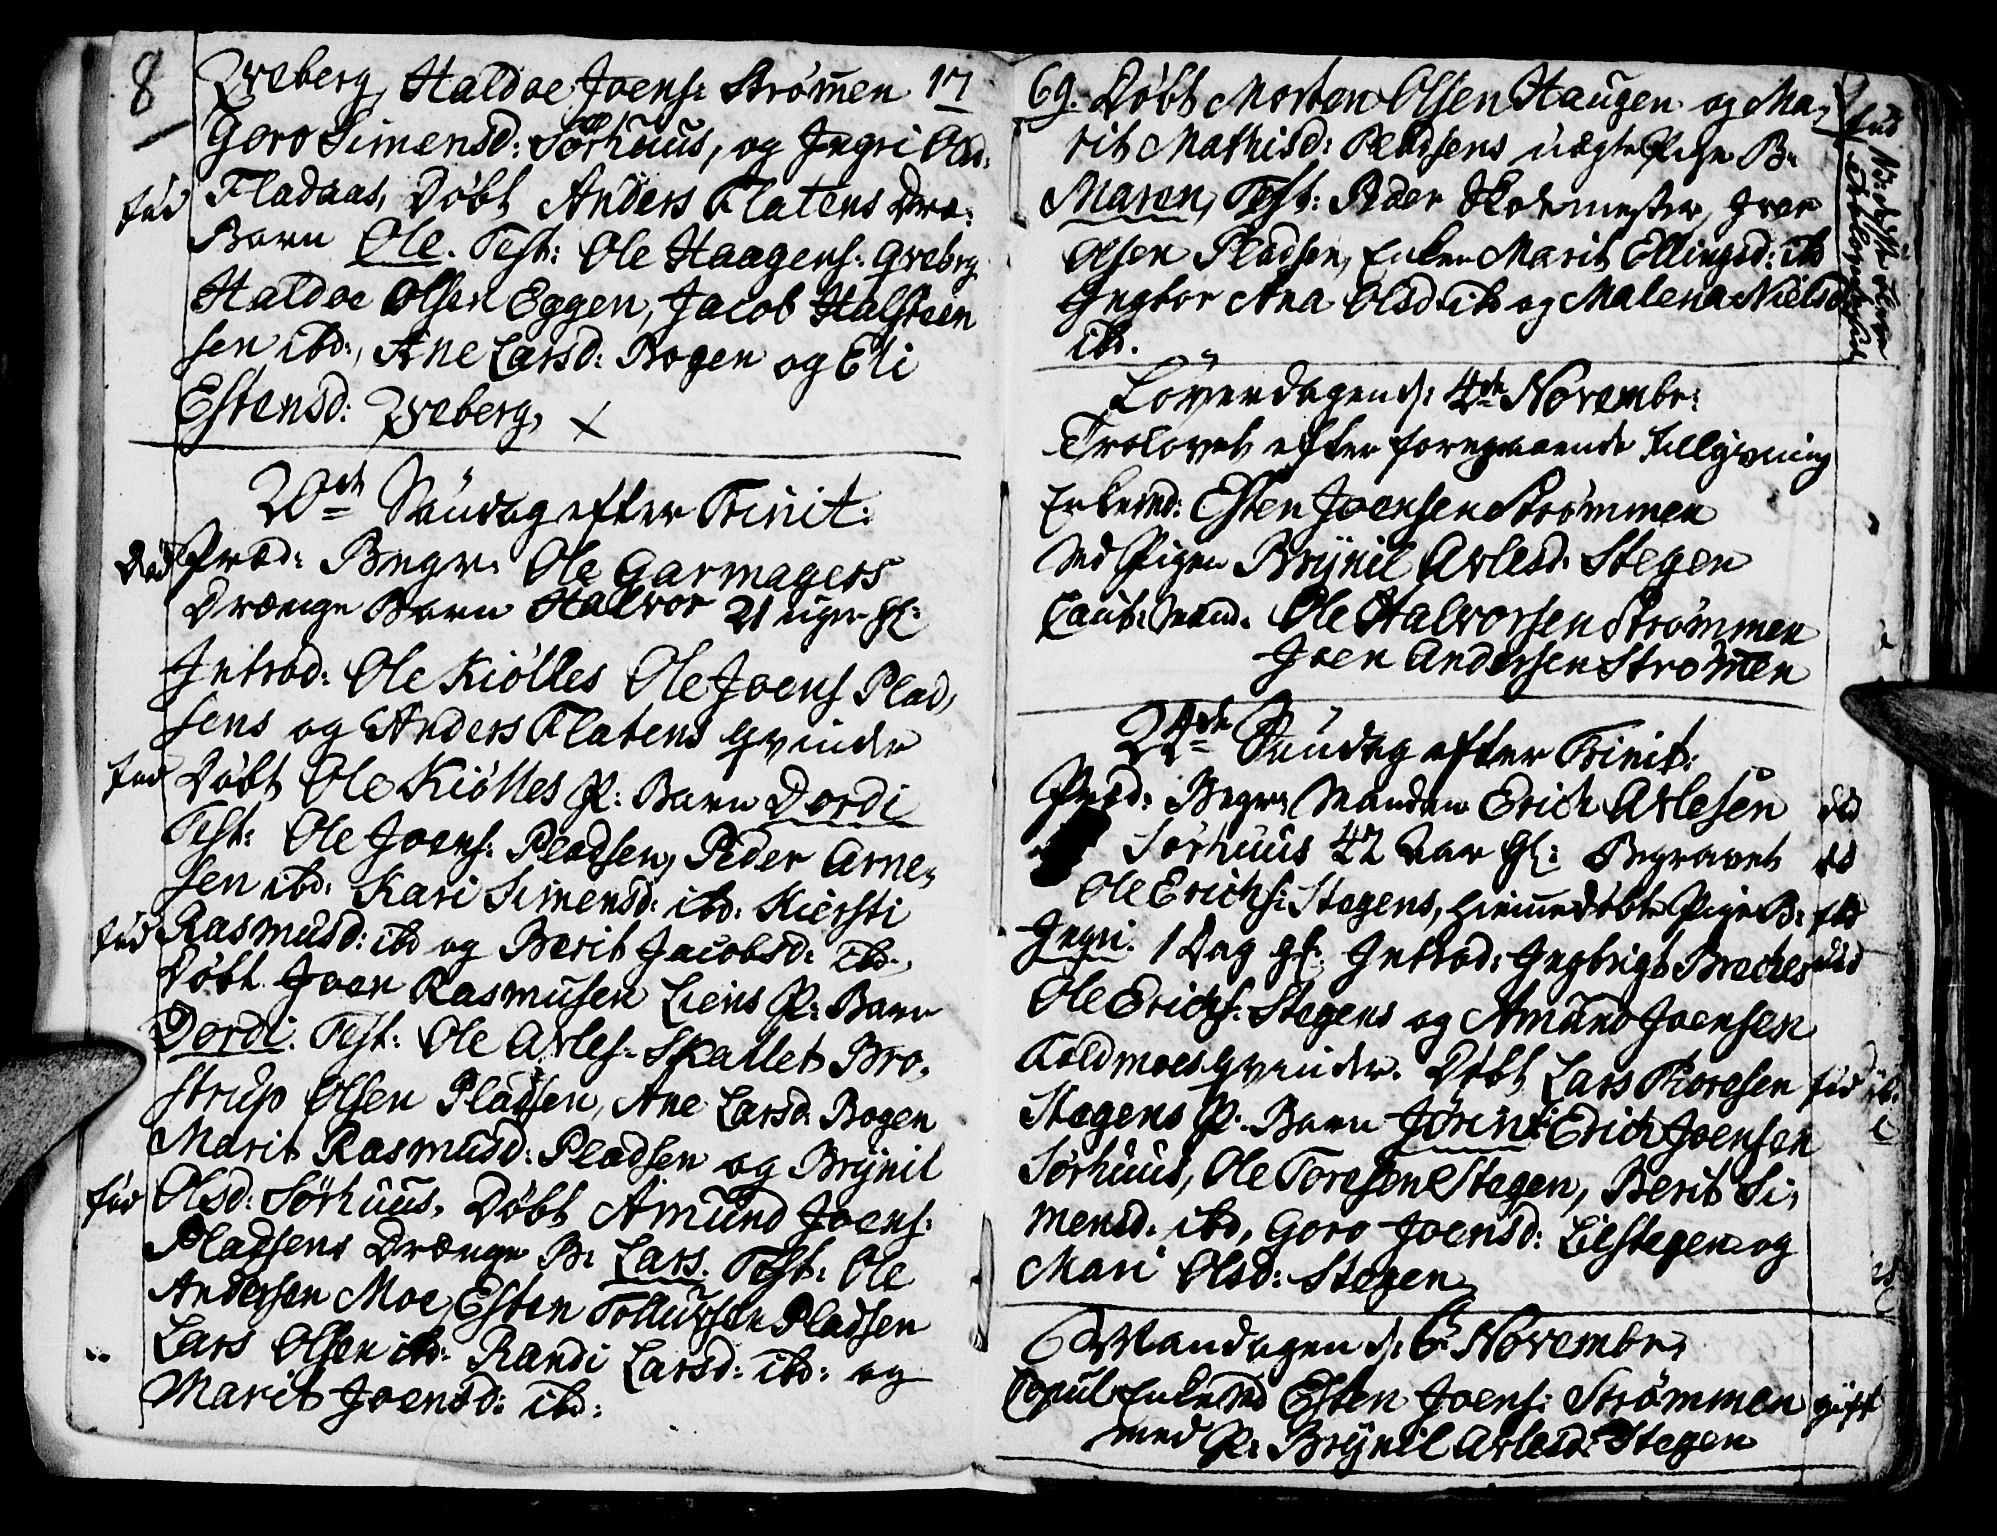 8
Qveberg, Haldoe Joens: Strømen 17
Goro Simensd: Sørhuus, og Ingri Ols:
Fladaas, Døbt Anders Flatens Dre:
fød
Barn Ole. Test: Ole Haagens: Qvebrg
Haldoe Olsen Eggen, Jacob Halsteen
sen ibd:, Ane Larsd: Bogen og Eli
Estensd: Qveberg, x
20de Søndag efter Trinit:
død Præd: Begr: Ole Garmagers
Drænge Barn Halvor 21 uger gl:
Introd: Ole Kiølles Ole Joens Plad,
sens og Anders Flatens Qvinder
fød Døbt Ole Kiølles P: Barn Dordi
Test: Ole Joens: Pladsen, Peder Arne,
sen ibd: Kari Simensd: ibd: Kiersti
fød Rasmusd: ibd og Berit Jacobsd: ibd,
Døbt Joen Rasmusen Liens P: Barn
Dordi. Test: Ole Arles: Skallet Bro,
strup Olsen Pladsen, Ane Larsd: Bogen
Marit Rasmusd: Pladsen og Brynil
fød Olsd: Sørhuus, Døbt Amund Joens:
Pladsens Drænge B: Lars. Test: Ole
Andersen Moe, Esten Tollufsen Pladsen
Lars Olsen ibd: Randi Larsd: ibd: og
Marit Joensd: ibd:
69. Døbt Morten Olsen Haugen og Ma,
rit Mathisd: Pladsens uægte Pige B:
Maren, Test: Peder Skolemester, Iver
Olsen Pladsen, Enken Marit Ellingsd: ibd
Ingbor Ana Olsd: ibd og Malena Nielsd
ibd.
fød
Løverdagen d: 4de Novembr:
Trolovet efter foregaaende Tillysning
Enkemd: Esten Joensen Strømmen
med Pigen Brynil Arlesd: Stegen
Caut: Mænd: Ole Halvorsen Strømmen
Joen Andersen Strømen
22de Søndag efter Trinit:
Præd: Begr: Manden Erich Arlesen død
Sørhuus 42 Aar gl: Begravet død
Ole Erichs: Stegens, hiemedøbt Pige B: fød
Ingri. 1 Dag gl: Introd: Ingbrigt Broches
Ole Erichs: Stegens og Amund Joensen
Aoldmoes Qvinder. Døbt Lars Toresen fød
Stegens P: Barn Jørini Erich Joensen
Sørhuus, Ole Toresen Stegen, Berit Si,
mensd: ibd, Goro Joensd: Lilstegen og
Mari Olsd: Stegen
Mandagen d: 6te Novembr,
Copul: Enkemd Esten Joens: Strømmen gift
med P: Brynil Arlesd: Stegen